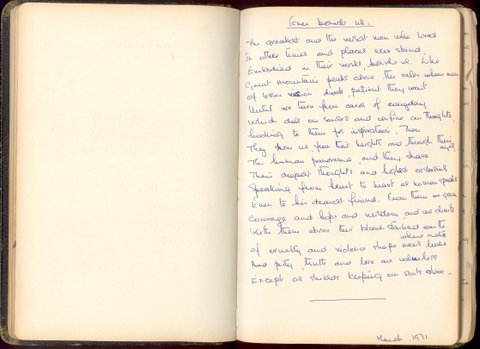 Ever beside us.
The greatest and the wisest men who lived
In other times and places ever stand
Embodied in their works beside us. Like
Great mountain peaks above the vales where men
of lesser vision dwell patient they wait
Until we turn from cares of everyday
which dull our senses and confine our thoughts,
looking to them for inspiration. Then
They show us from their heights and through their eyes
The human panorama, and they share
Their deepest thoughts and highest ecstasies
Speaking from heart to heart as no man speaks
Even to his dearest friend. From them we gain
Courage and hope and wisdom and we climb
With them above this blood stained earth
of cruelty and violence shapes men's lives
And pity, truth and love are valueless
Except as shields keeping our souls alive.
March 1971